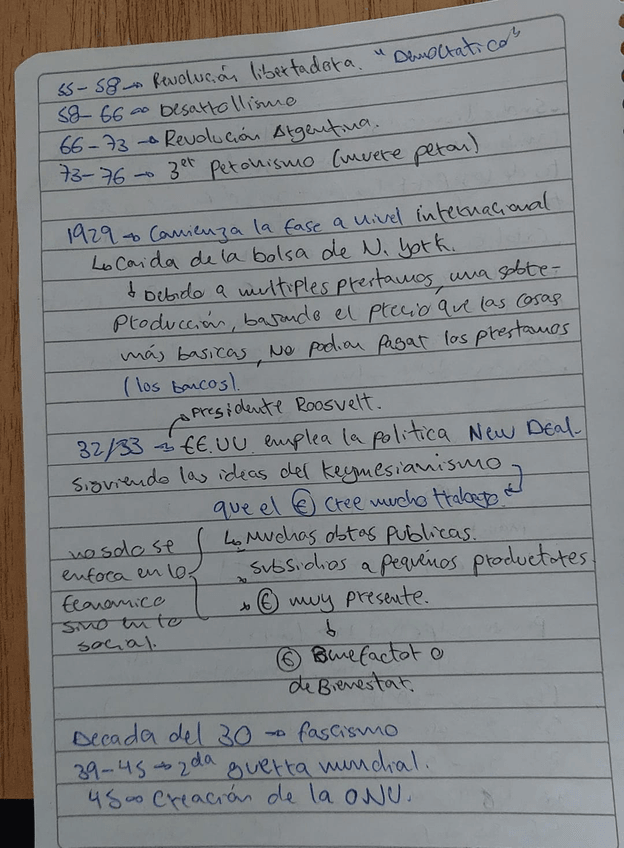 55-58 → Revolución libertadora. "Democratico"
58-66 → Desarrollismo
66-73 → Revolución Argentina.
73-76 → 3er Peronismo (muere peron)
1929 → Comienza la fase a nivel internacional
↳ Caida de la bolsa de N. York.
↓ Debido a multiples prestamos, una sobre-
Producción, bajando el precio que las cosas
más basicas, No podian pagar los prestamos
(los bancos).
→ Presidente Roosvelt.
32/33 → EE.UU. emplea la politica New Deal
siguiendo las ideas del keynesianismo
que el Ⓔ cree mucho trabajo
↳ Muchas obras publicas.
no solo se
enfoca en lo
Economico
sino en lo
social.
→ subsidios a pequeños productores
→ Ⓔ muy presente.
↓
Ⓔ Benefactor o
de Bienestar.
Decada del 30 → fascismo
39-45 → 2da guerra mundial.
45 → Creación de la ONU.